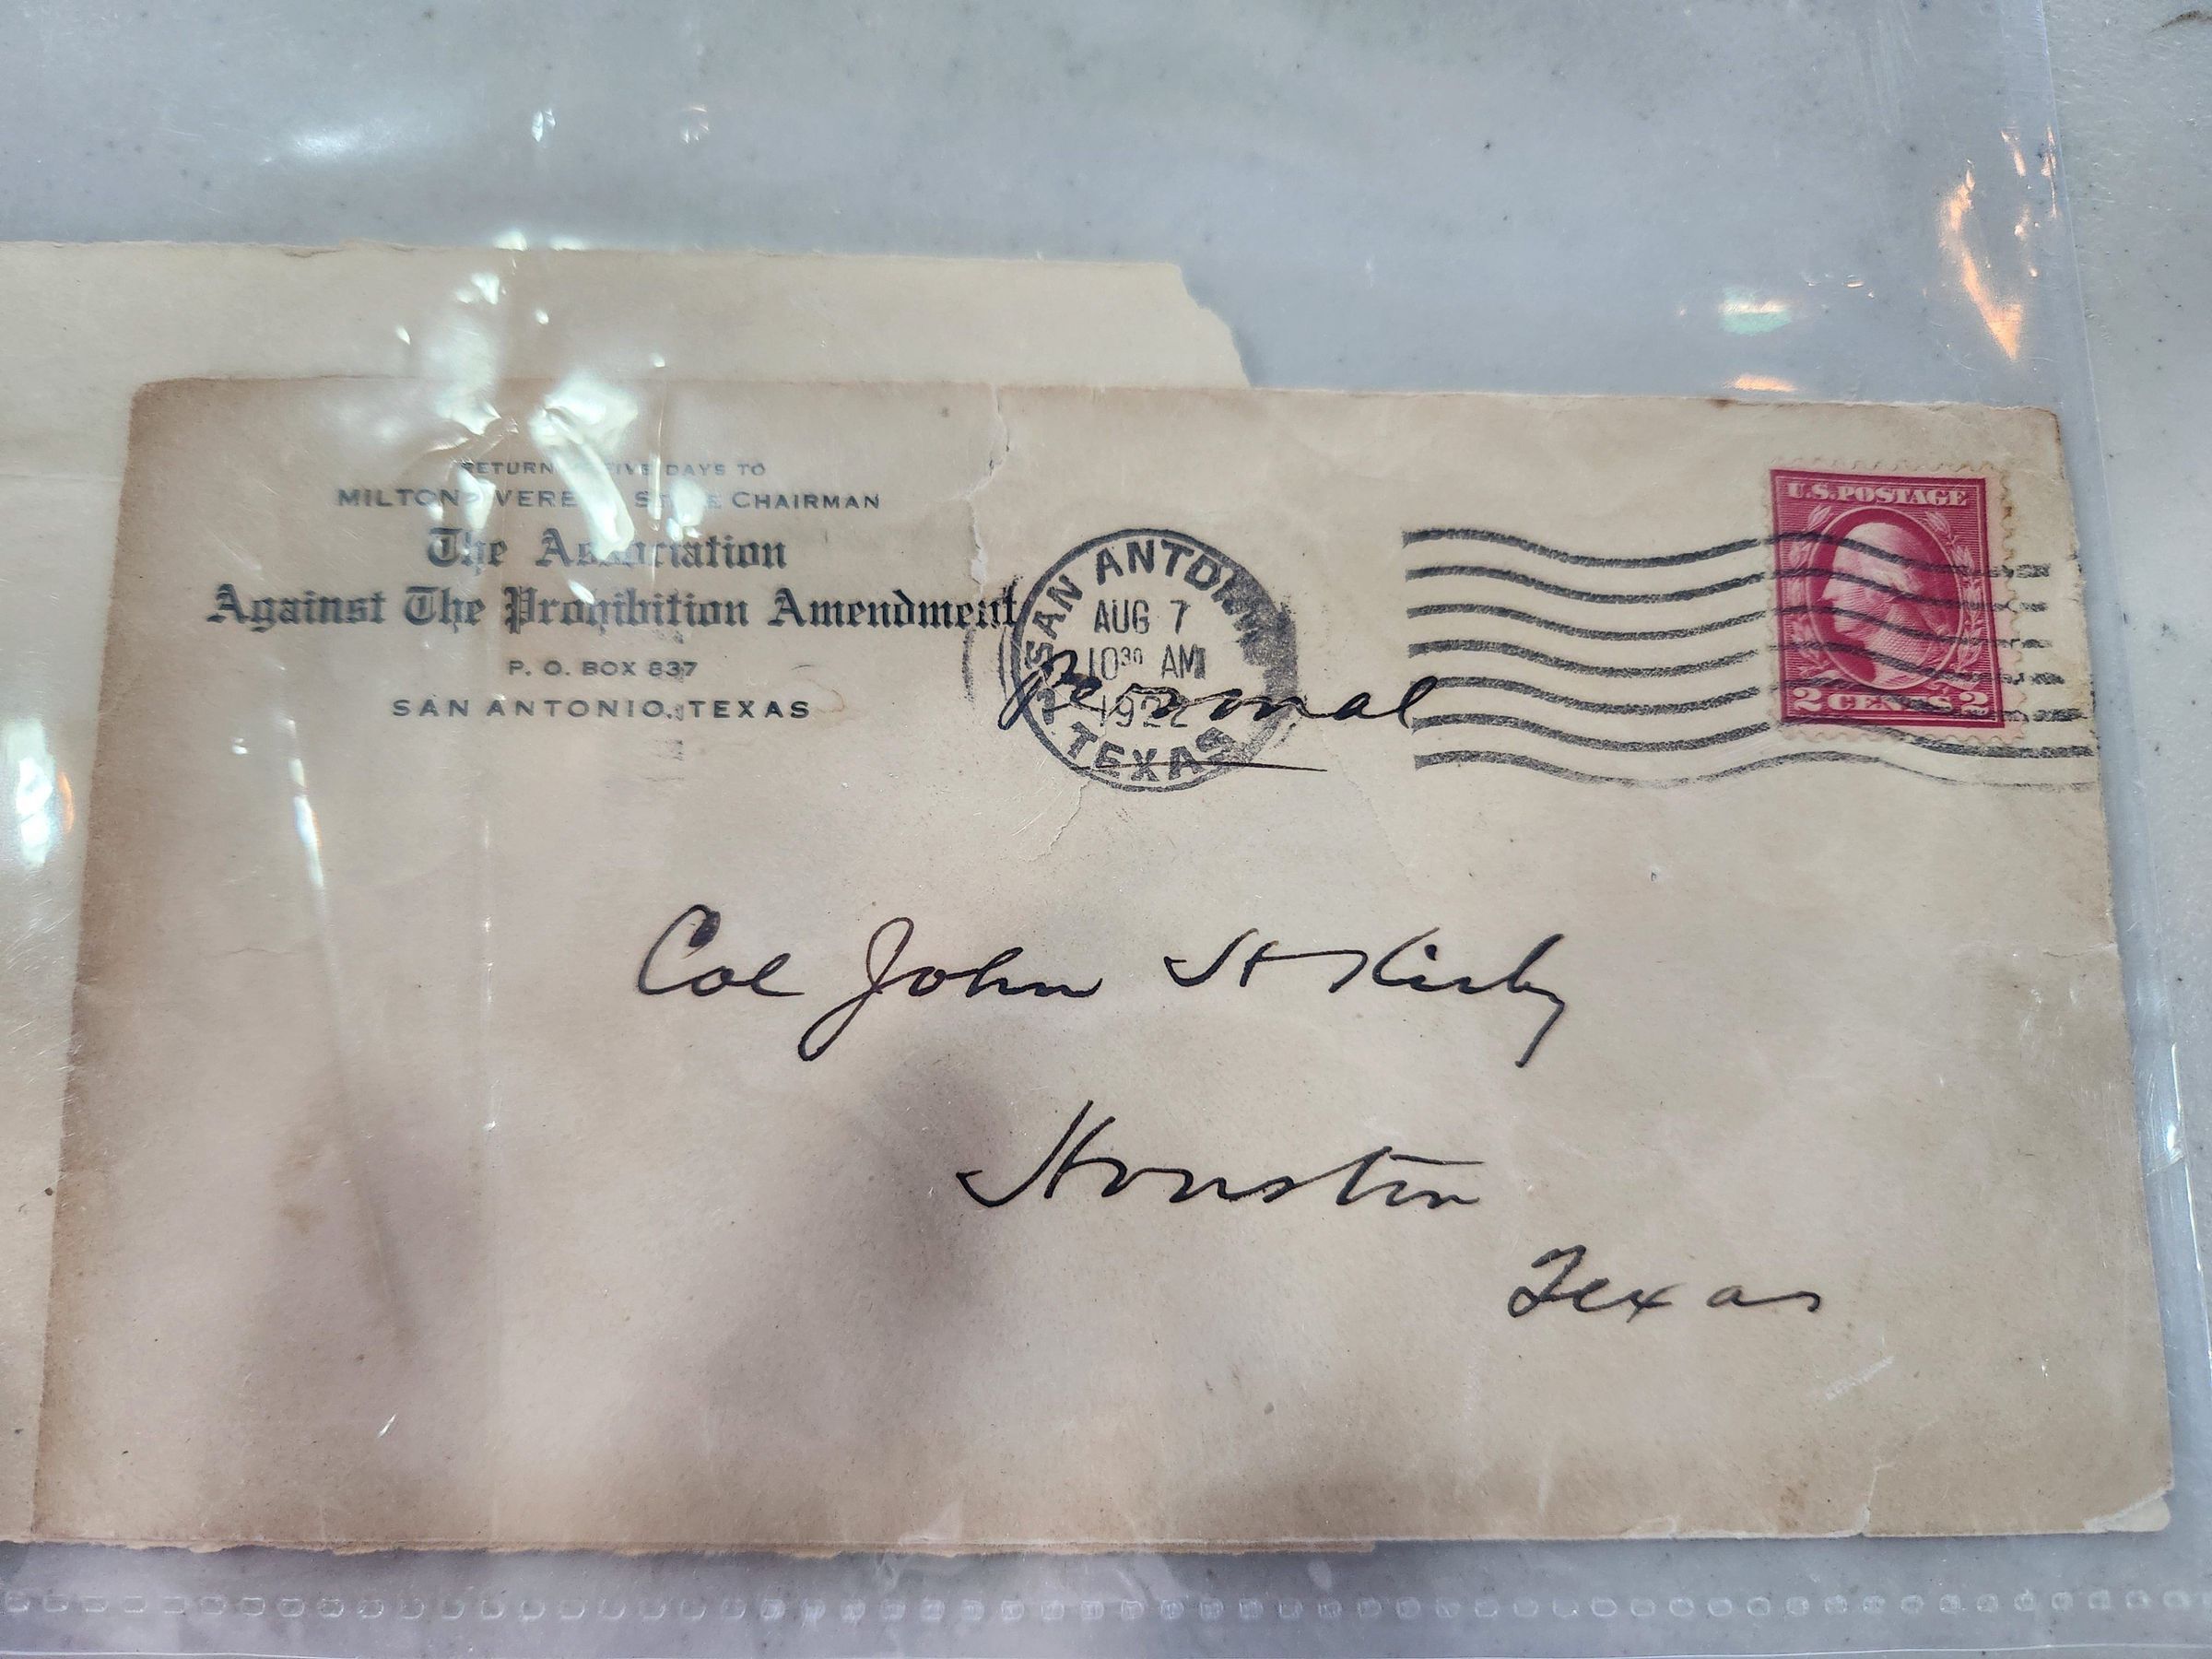 RETURN FIVE DAYS TO
MILTON EVERETT STATE CHAIRMAN
The Association
Against The Prohibition Amendment
P. O. BOX 837
SAN ANTONIO, TEXAS
SAN ANTONIO
AUG 7
10 30 AM
1922
TEXAS
Personal
U.S. POSTAGE
2 CENTS 2
Col John H Kirby
Houston
Texas